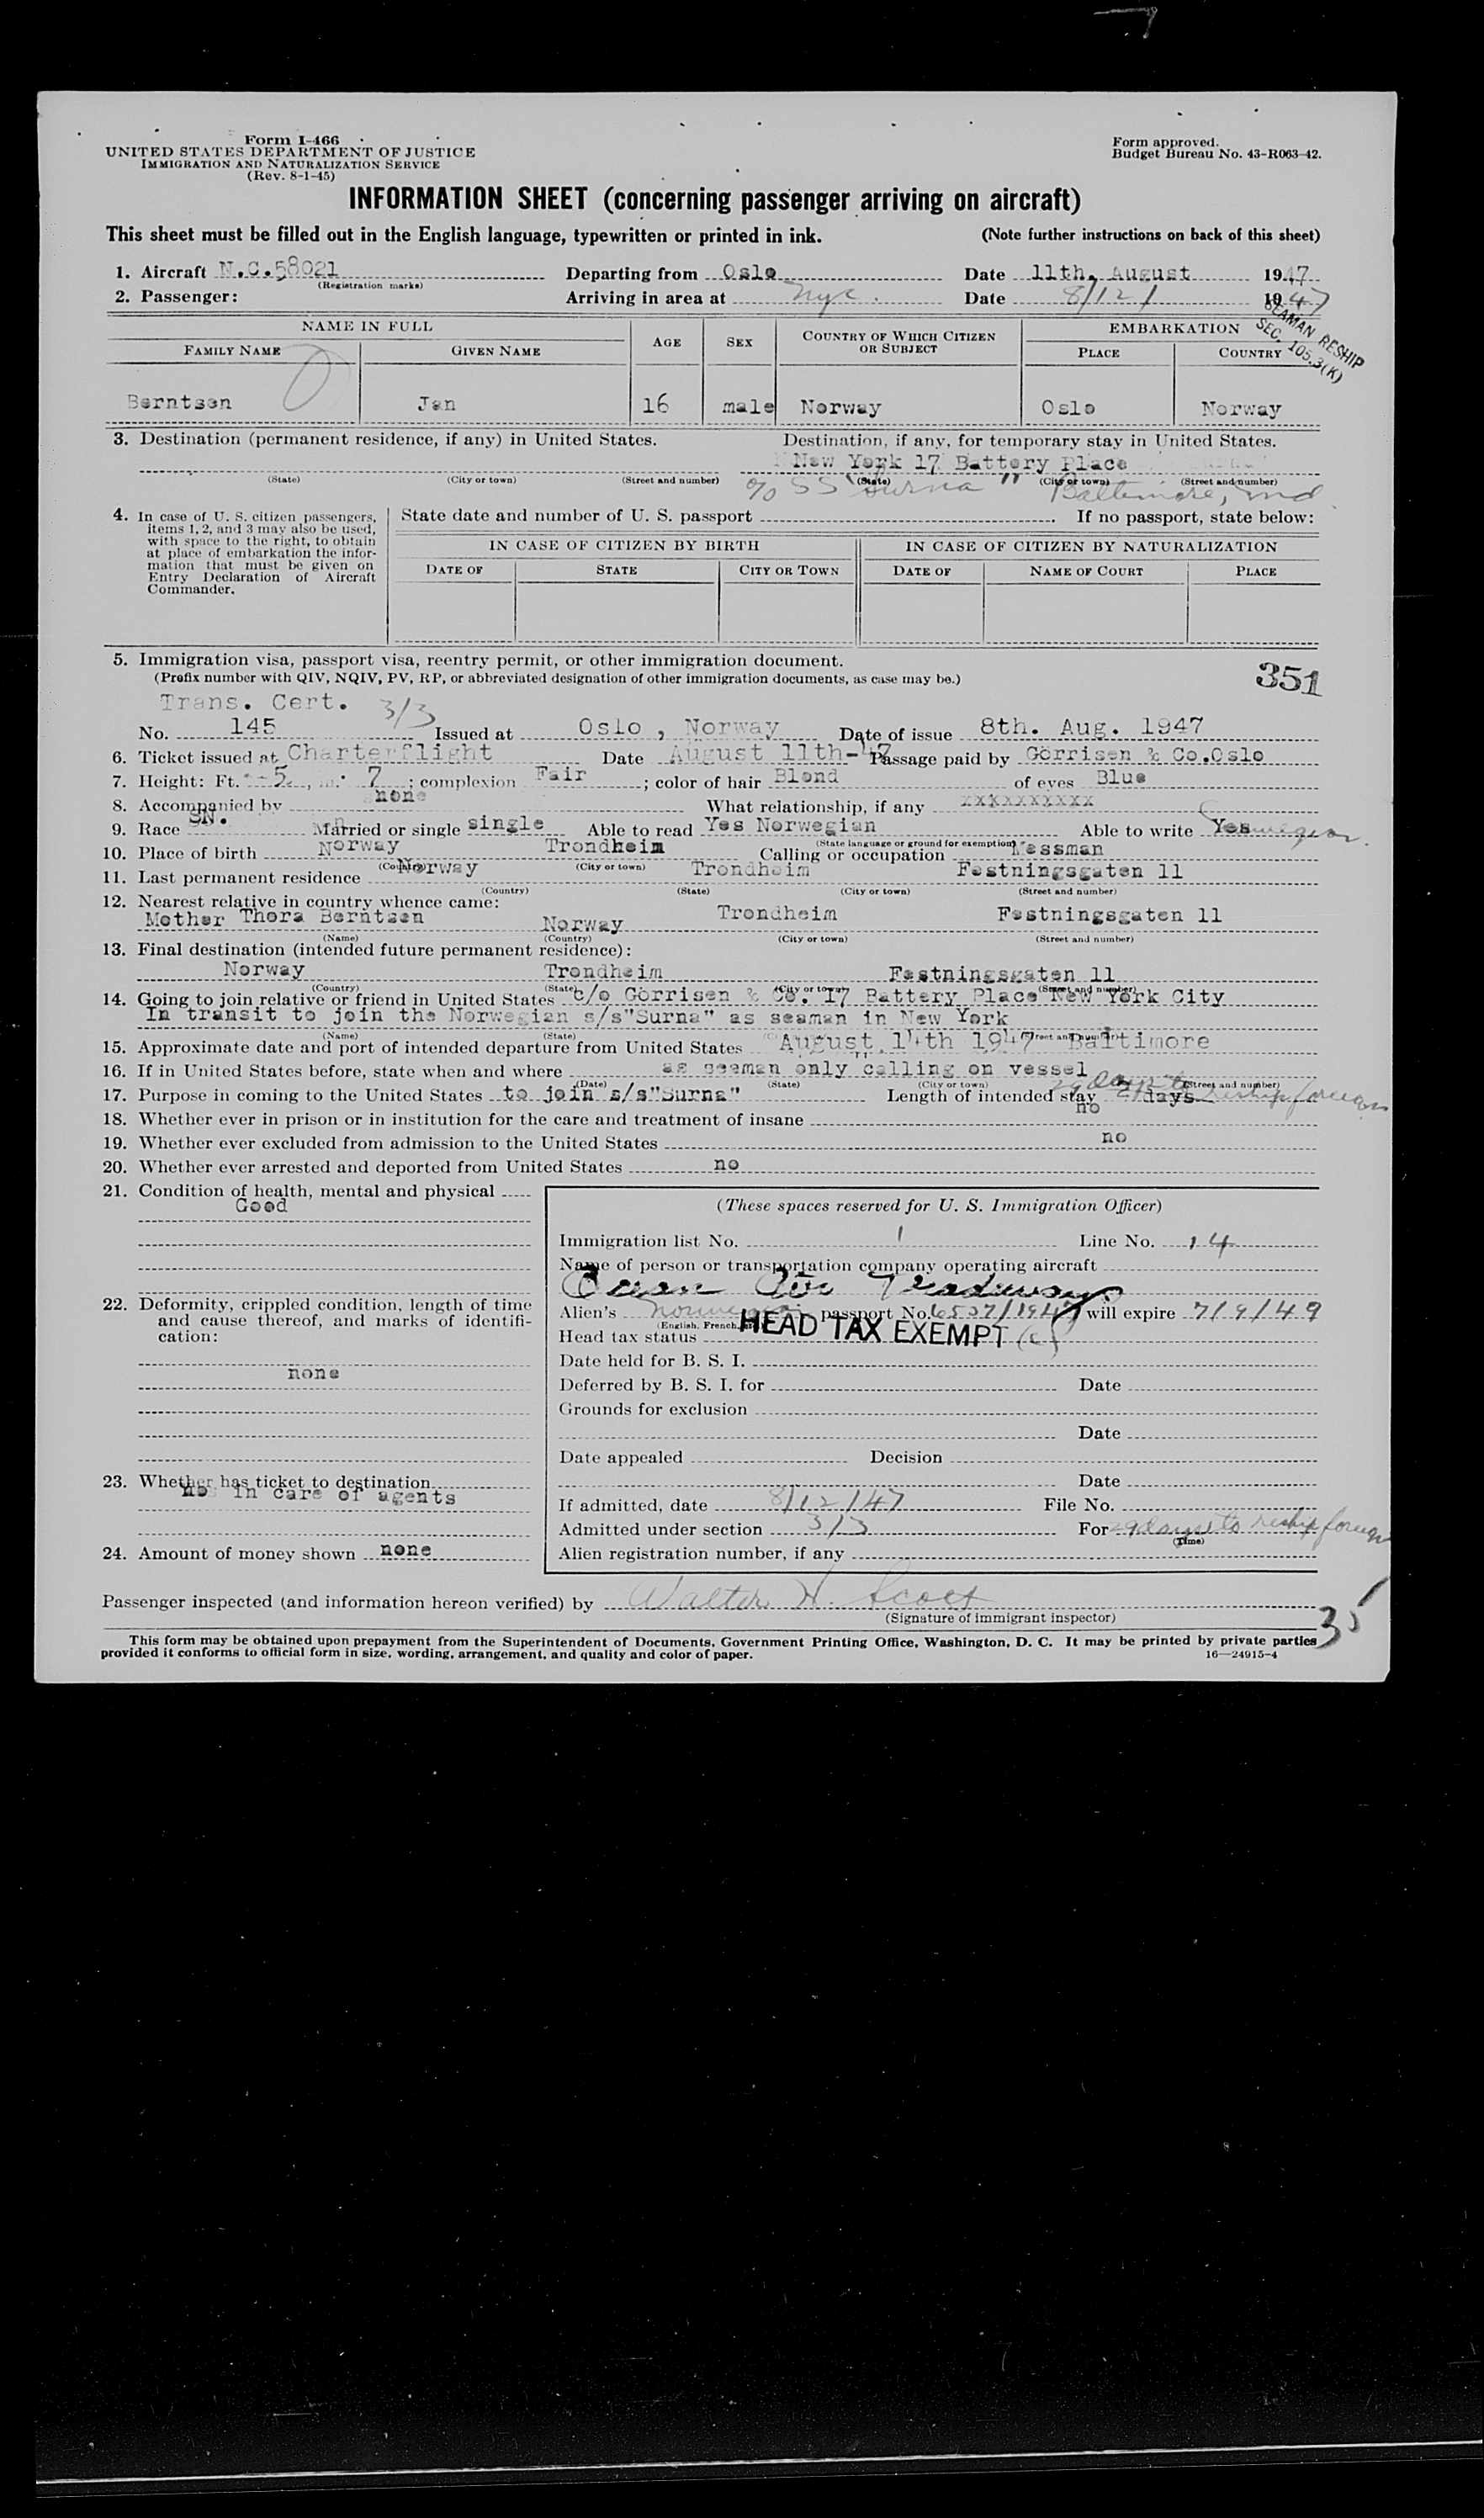 Form I-466
UNITED STATES DEPARTMENT OF JUSTICE
IMMIGRATION AND NATURALIZATION SERVICE
(Rev. 8-1-45)
Form approved.
Budget Bureau No. 43-R063-42.
INFORMATION SHEET (concerning passenger arriving on aircraft)
This sheet must be filled out in the English language, typewritten or printed in ink. (Note further instructions on back of this sheet)
1. Aircraft N.C.58021 Departing from Oslo Date 11th. August 1947
(Registration marks)
2. Passenger: Arriving in area at nyc. Date 8/12/ 1947
SEAMAN RESHIP
SEC. 105.3(K)
NAME IN FULL AGE SEX COUNTRY OF WHICH CITIZEN OR SUBJECT EMBARKATION
FAMILY NAME GIVEN NAME PLACE COUNTRY
Berntsen Jan 16 male Norway Oslo Norway
3. Destination (permanent residence, if any) in United States. Destination, if any, for temporary stay in United States.
New York 17 Battery Place
(State) (City or town) (Street and number) (State) (City or town) (Street and number)
% SS "Surna" Baltimore, Md
4. In case of U. S. citizen passengers, items 1, 2, and 3 may also be used, with space to the right, to obtain at place of embarkation the information that must be given on Entry Declaration of Aircraft Commander.
State date and number of U. S. passport If no passport, state below:
IN CASE OF CITIZEN BY BIRTH IN CASE OF CITIZEN BY NATURALIZATION
DATE OF STATE CITY OR TOWN DATE OF NAME OF COURT PLACE
5. Immigration visa, passport visa, reentry permit, or other immigration document.
(Prefix number with QIV, NQIV, PV, RP, or abbreviated designation of other immigration documents, as case may be.)
351
Trans. Cert. 3/3
No. 145 Issued at Oslo , Norway Date of issue 8th. Aug. 1947
6. Ticket issued at Charterflight Date August 11th-47 Passage paid by Görrisen & Co.Oslo
7. Height: Ft. 5 , in. 7 ; complexion Fair ; color of hair Blond of eyes Blue
8. Accompanied by none What relationship, if any xxxxxxxxxx
9. Race SN. Married or single single Able to read Yes Norwegian Able to write Yes
(State language or ground for exemption)
10. Place of birth Norway Trondheim Calling or occupation Messman
(Country) (City or town)
11. Last permanent residence Norway Trondheim Festningsgaten 11
(Country) (State) (City or town) (Street and number)
12. Nearest relative in country whence came:
Mother Thora Berntsen Norway Trondheim Festningsgaten 11
(Name) (Country) (City or town) (Street and number)
13. Final destination (intended future permanent residence):
Norway Trondheim Festningsgaten 11
(Country) (State) (City or town) (Street and number)
14. Going to join relative or friend in United States c/o Görrisen & Co. 17 Battery Place New York City
In transit to join the Norwegian s/s"Surna" as seaman in New York
(Name) (State) (Street and number)
15. Approximate date and port of intended departure from United States August 14th 1947 Baltimore
16. If in United States before, state when and where as seaman only calling on vessel
(Date) (State) (City or town) (Street and number)
17. Purpose in coming to the United States to join s/s"Surna" Length of intended stay days 29 days to reship foreign
18. Whether ever in prison or in institution for the care and treatment of insane no
19. Whether ever excluded from admission to the United States no
20. Whether ever arrested and deported from United States no
21. Condition of health, mental and physical
Good
22. Deformity, crippled condition, length of time and cause thereof, and marks of identification:
none
23. Whether has ticket to destination
no in care of agents
24. Amount of money shown none
(These spaces reserved for U. S. Immigration Officer)
Immigration list No. 1 Line No. 14
Name of person or transportation company operating aircraft
Ocean Air Tradeways
Alien's Norwegian passport No. 6507/1947 will expire 7/9/49
(English, French,
Head tax status HEAD TAX EXEMPT
Date held for B. S. I.
Deferred by B. S. I. for Date
Grounds for exclusion
Date
Date appealed Decision
Date
If admitted, date 8/12/47 File No.
Admitted under section 3/3 For 29 days to reship foreign
(Time)
Alien registration number, if any
Passenger inspected (and information hereon verified) by Walter H. Scott
(Signature of immigrant inspector)
35
This form may be obtained upon prepayment from the Superintendent of Documents, Government Printing Office, Washington, D. C. It may be printed by private parties
provided it conforms to official form in size, wording, arrangement, and quality and color of paper. 16—24915-4